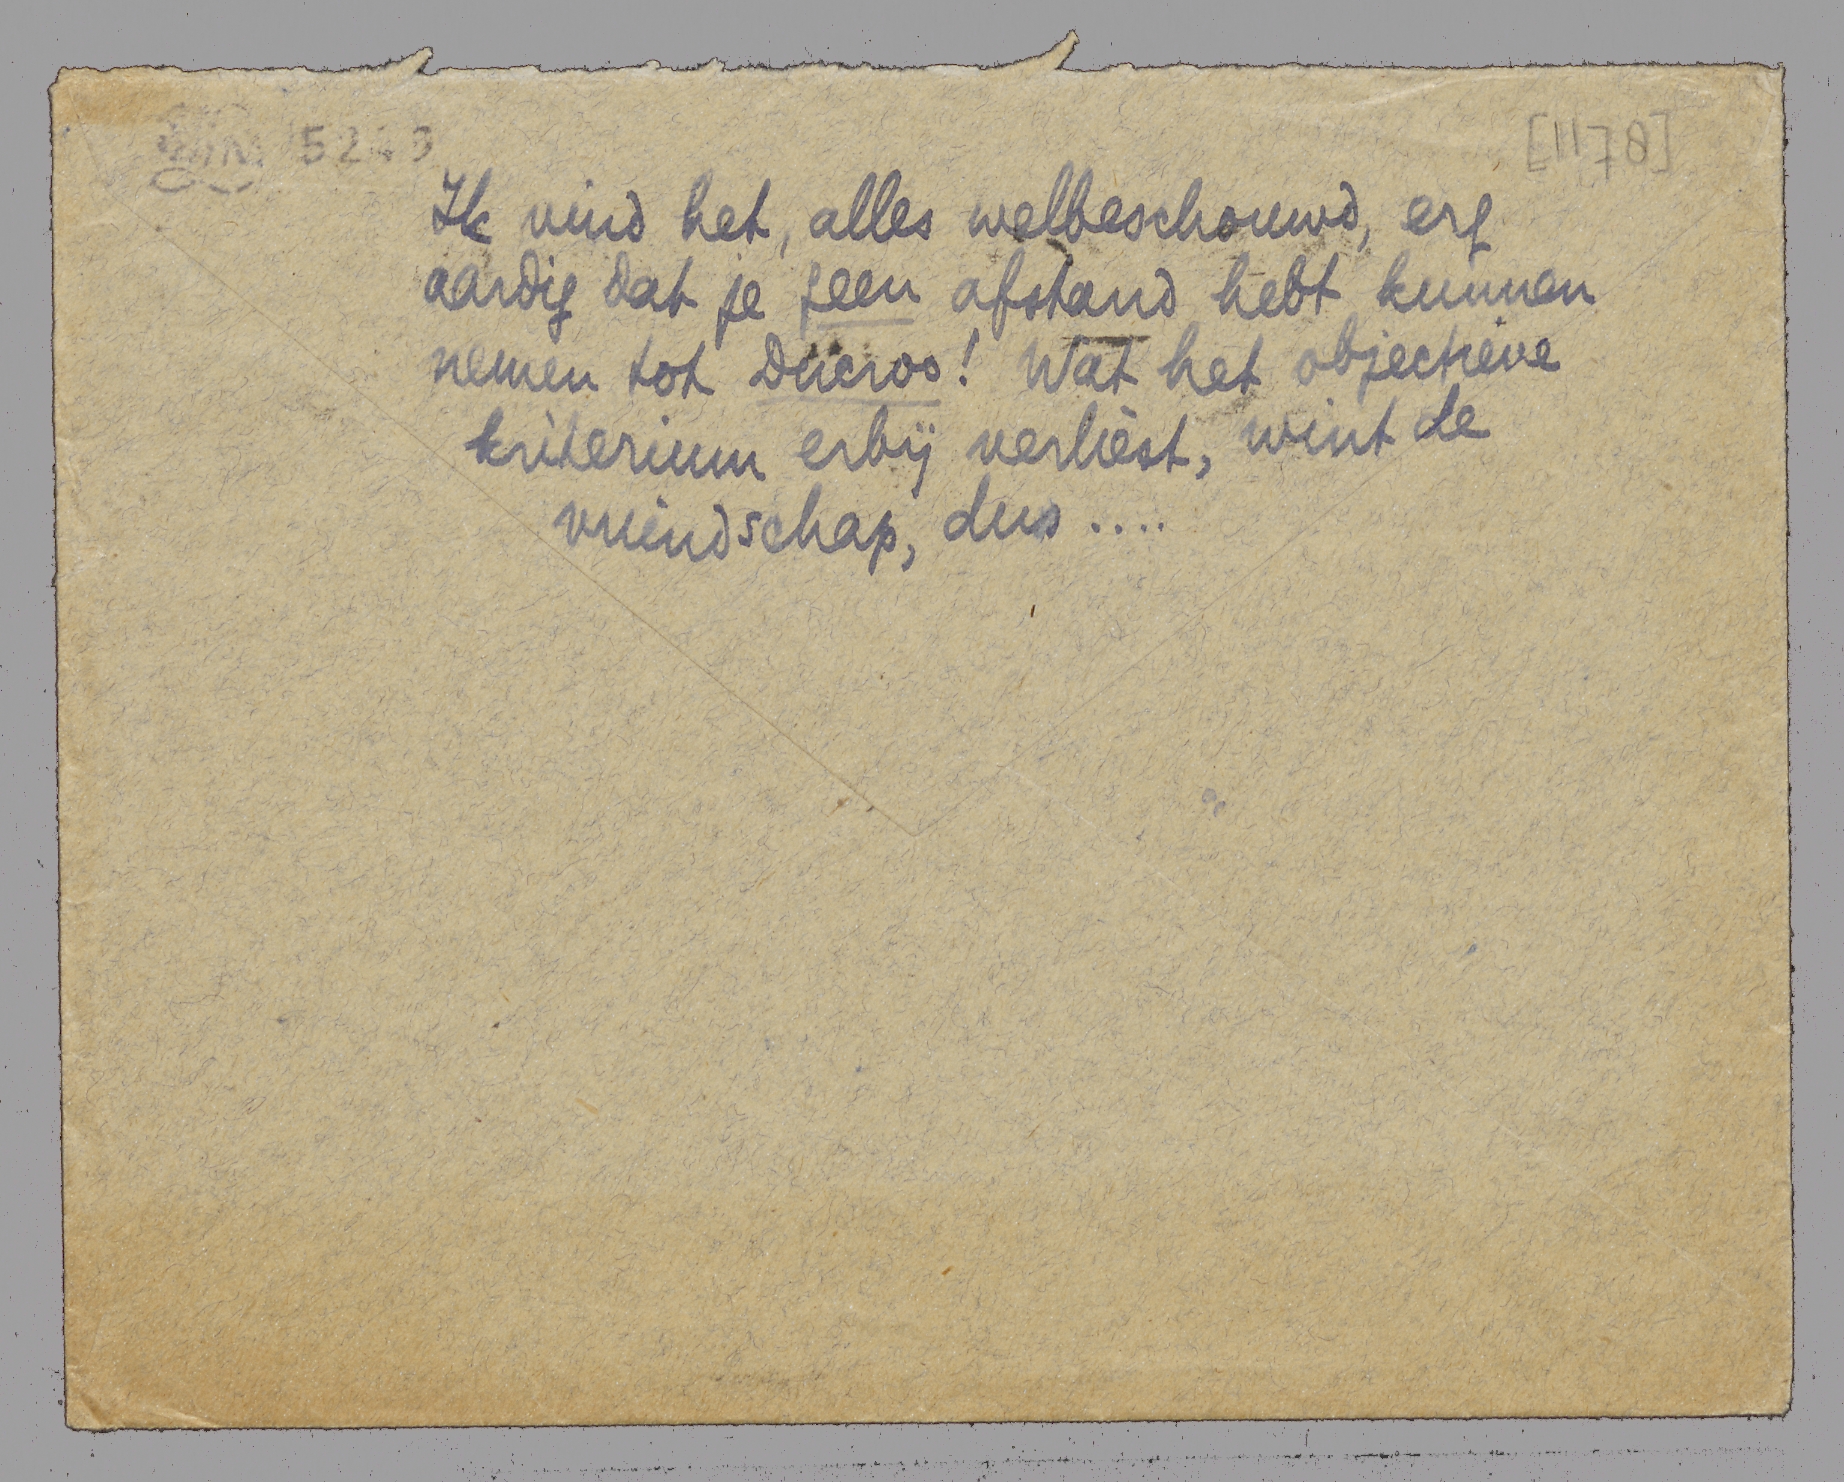 [1178]
Ik vind het, alles welbeschouwd, erg
aardig dat je geen afstand hebt kunnen
nemen tot Ducroo! Wat het objectieve
kriterium erbij verliest, wint de
vriendschap, dus ....